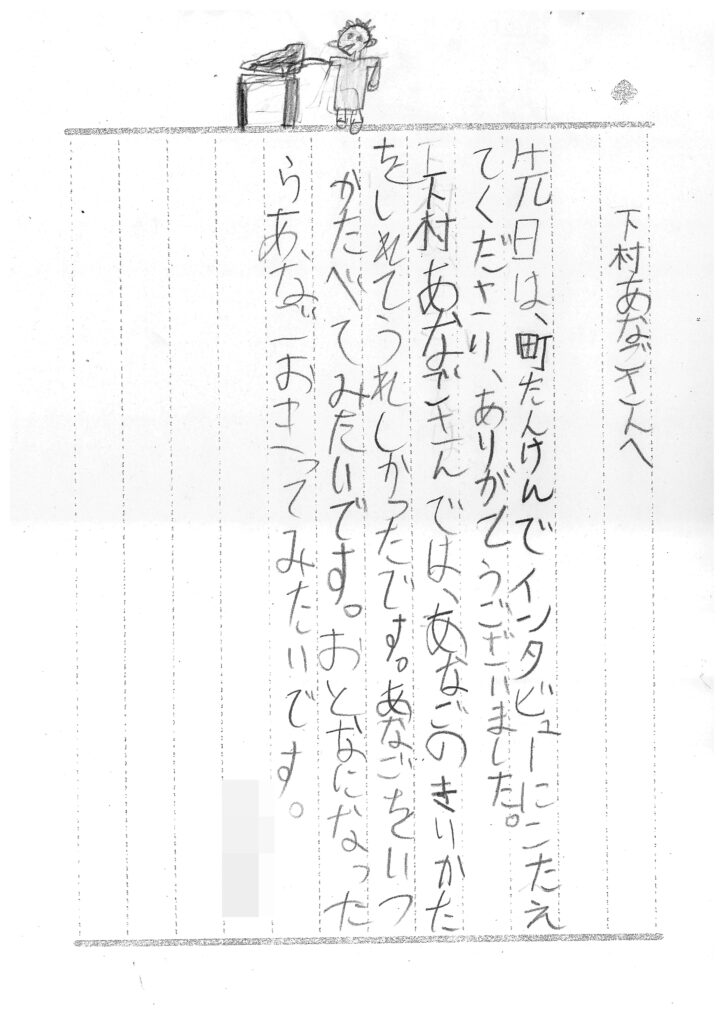 下村あなごさんへ
先日は、町たんけんでインタビューにこたえ
てくださり、ありがとうございました。
下村あなごさんでは、あなごのきりかた
をしれてうれしかったです。あなごをいつ
かたべてみたいです。おとなになった
らあなごおきってみたいです。